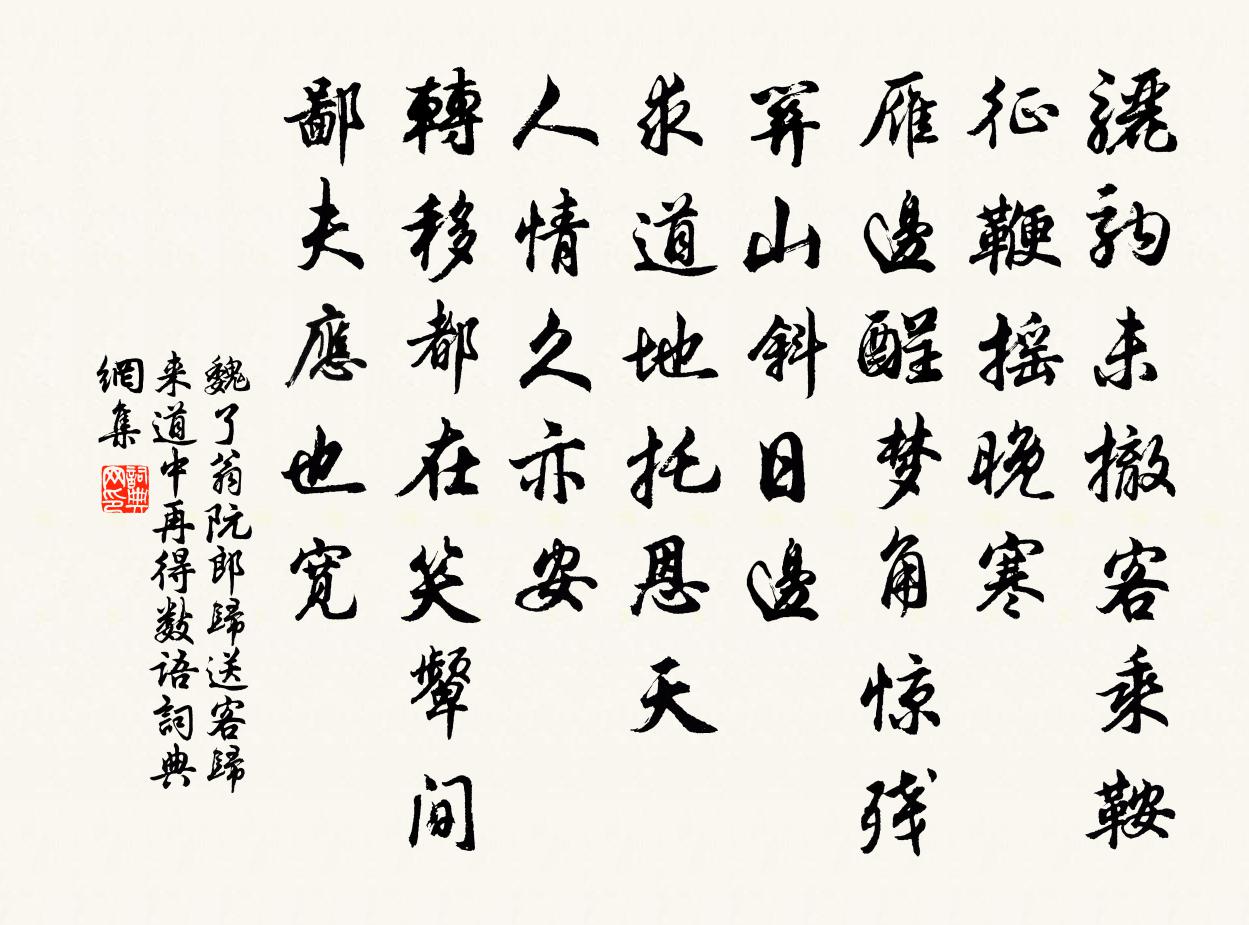 驪駒未撤客乘鞍
征鞭摇晚寒
雁邊醒梦角惊残
笄山斜日邊
求道地托恩天
人情久亦安
轉移都在笑颦间
鄙夫應也宽
魏了翁阮郎歸送客歸
来道中再得数語詞典
網集
詞典网印